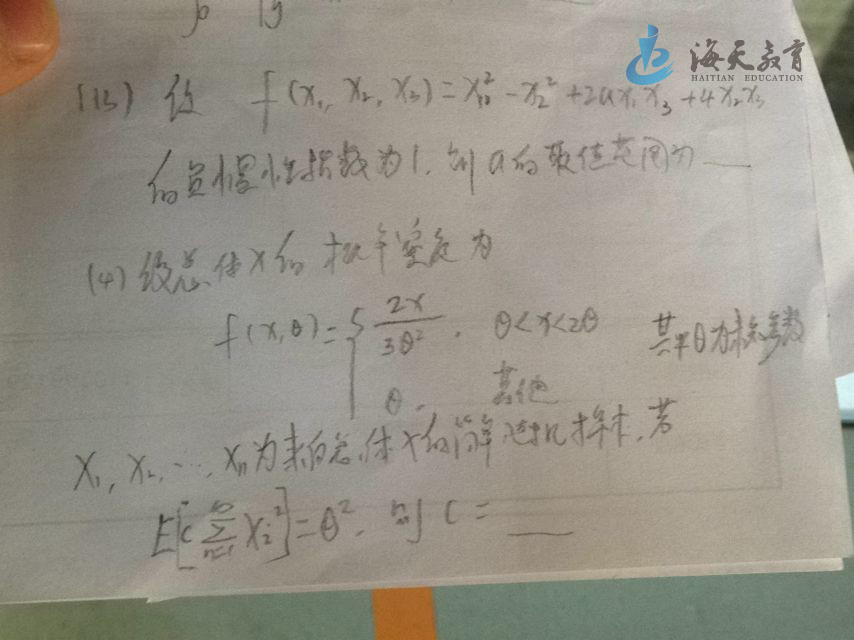 海天教育
HAITIAN EDUCATION
(13) 设 f(x₁, x₂, x₃)=x₁²-x₂²+2ax₁x₃+4x₂x₃
的负惯性指数为1,则a的取值范围为 ___
(4) 设总体X的概率密度为
f(x,θ)={ 2x/3θ², θ<x<2θ 其中θ为未知参数
θ, 其他
X₁, X₂, …, Xn为来自总体X的简单随机样本,若
E[c Σ Xi²]=θ², 则 c= ___